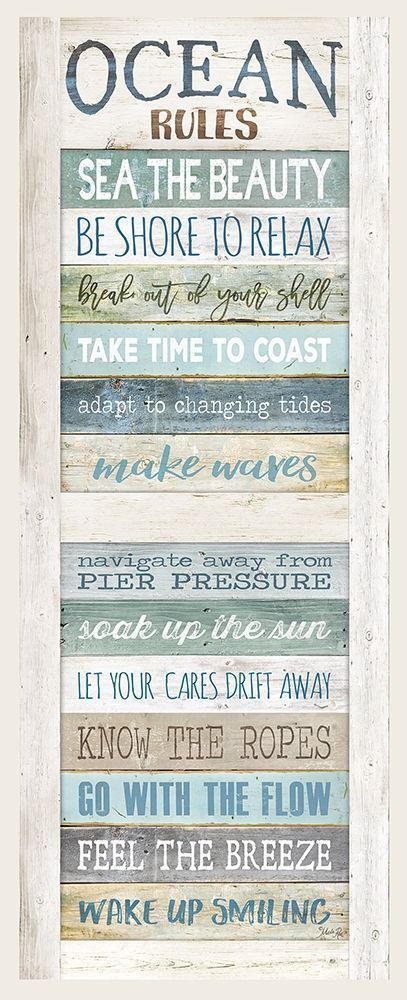 OCEAN
RULES
SEA THE BEAUTY
BE SHORE TO RELAX
break out of your shell
TAKE TIME TO COAST
adapt to changing tides
make waves
navigate away from
PIER PRESSURE
soak up the sun
LET YOUR CARES DRIFT AWAY
KNOW THE ROPES
GO WITH THE FLOW
FEEL THE BREEZE
WAKE UP SMILING